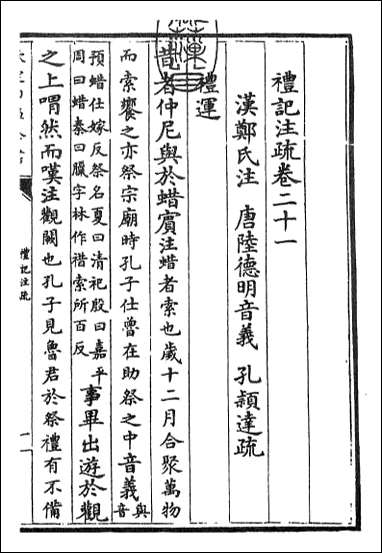 禮記注疏卷二十一
漢鄭氏注 唐陸德明音義 孔穎達疏
禮運
昔者仲尼與於蜡賓注蜡者索也歲十二月合聚萬物
而索饗之亦祭宗廟時孔子仕魯在助祭之中音義與音
預蜡仕嫁反祭名夏曰清祀殷曰嘉平
周曰蜡秦曰臘字林作䄍索所百反
事畢出遊於觀
之上喟然而嘆注觀闕也孔子見魯君於祭禮有不備
禮記注疏